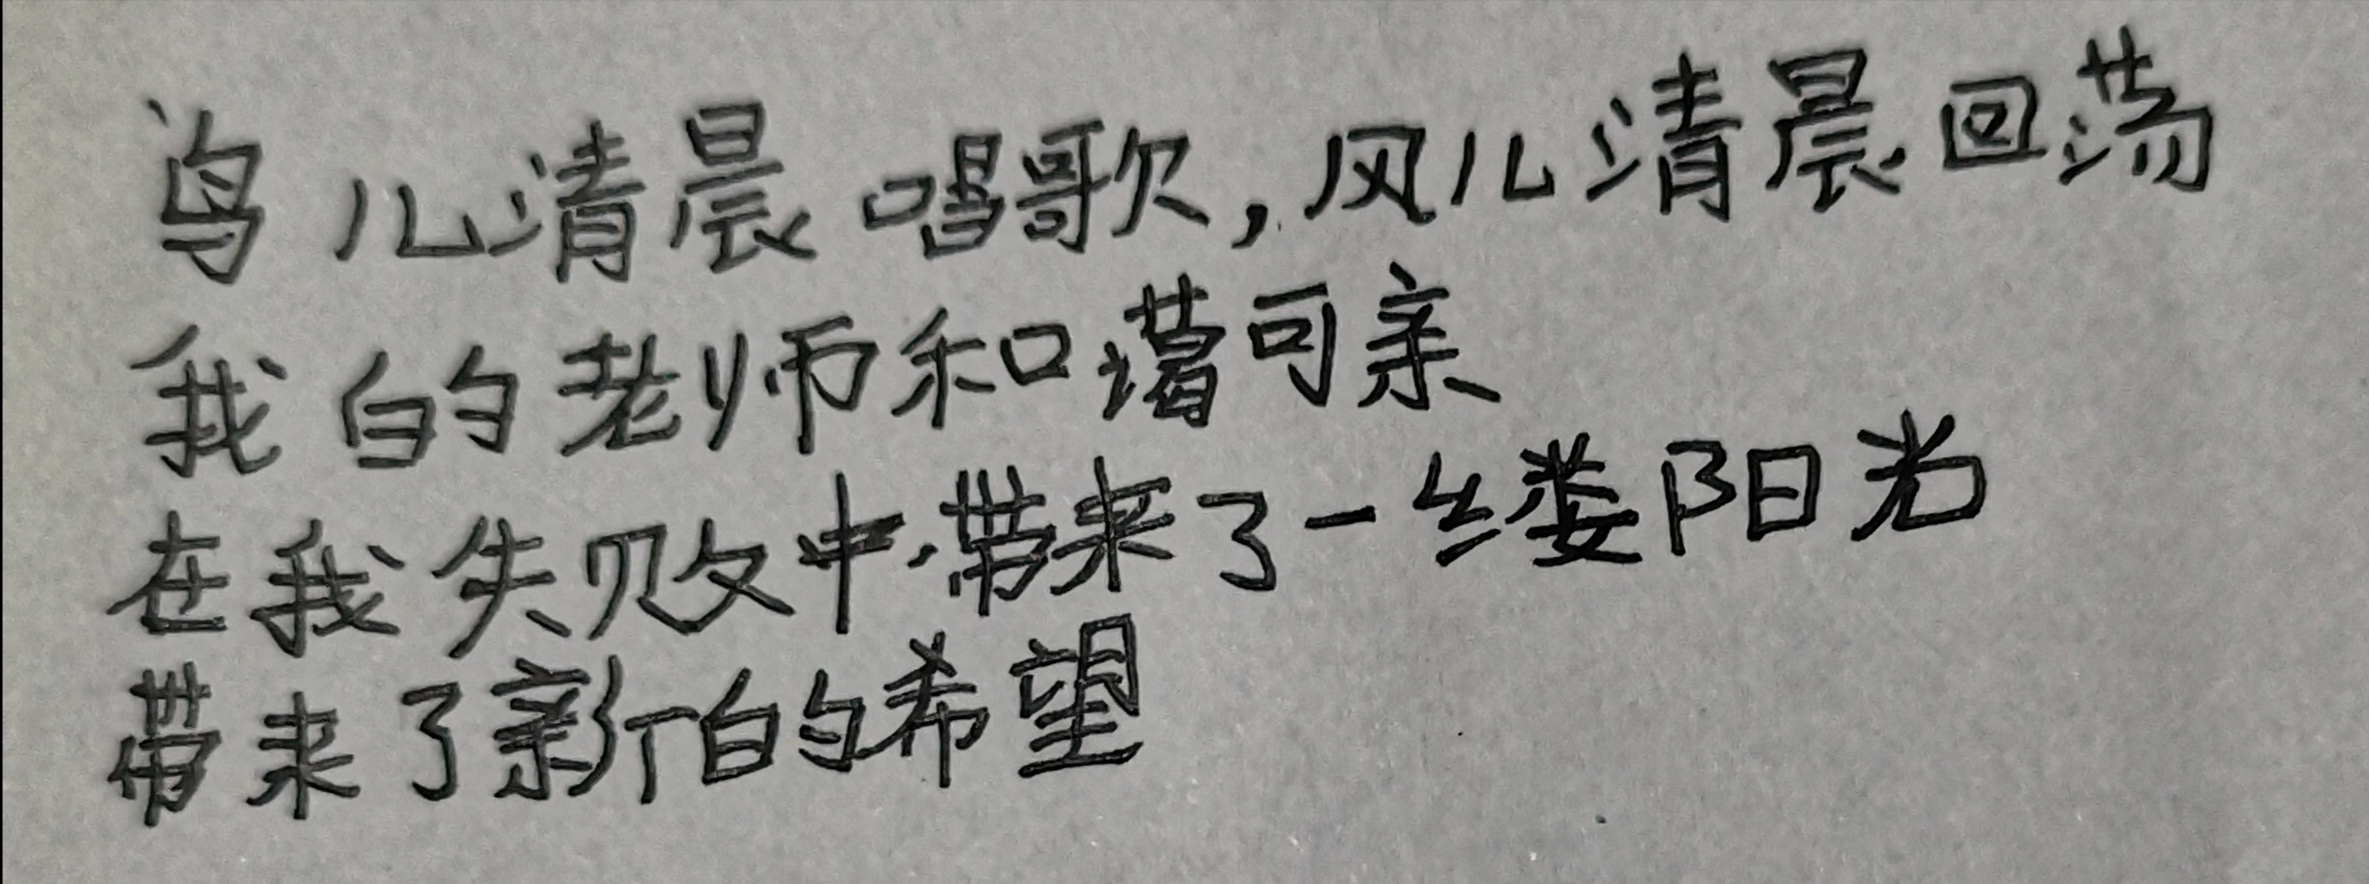 鸟儿清晨唱歌,风儿清晨回荡
我的老师和蔼可亲
在我失败中,带来了一缕阳光
带来了新的希望